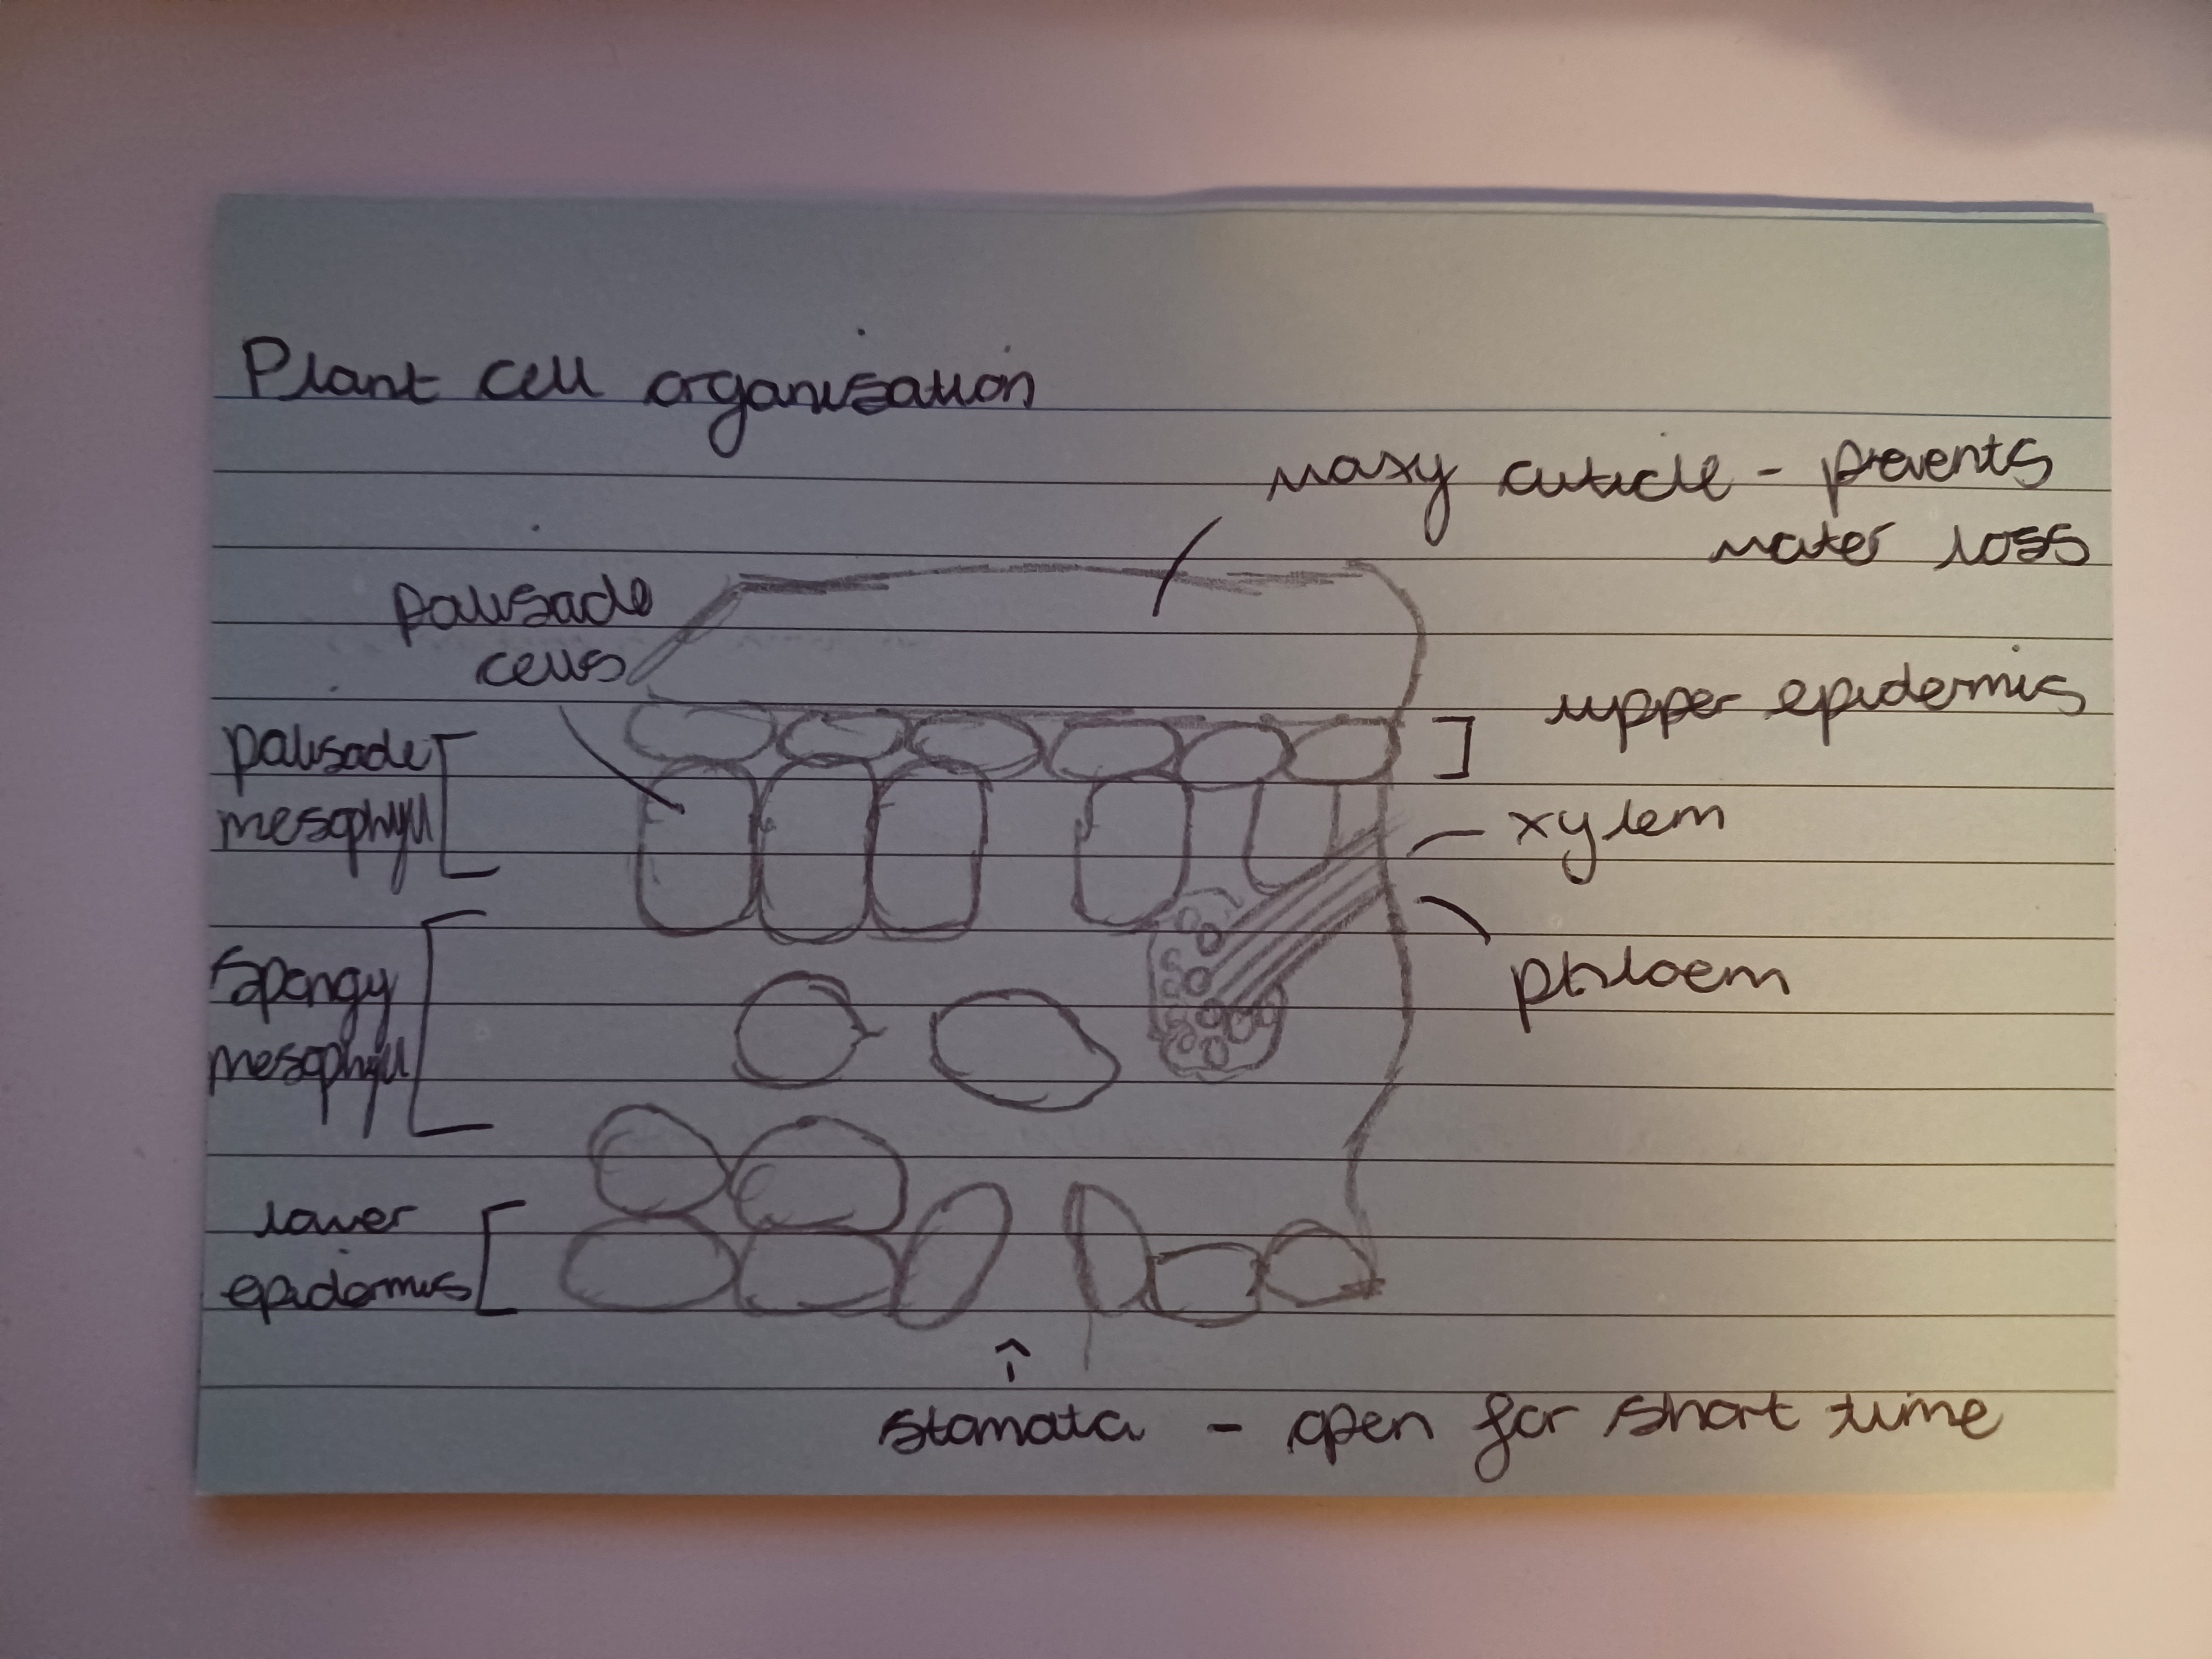 Plant cell organisation
waxy cuticle - prevents
water loss
palisade
cells
upper epidermis
palisade
mesophyll
xylem
phloem
spongy
mesophyll
lower
epidermis
stomata - open for short time